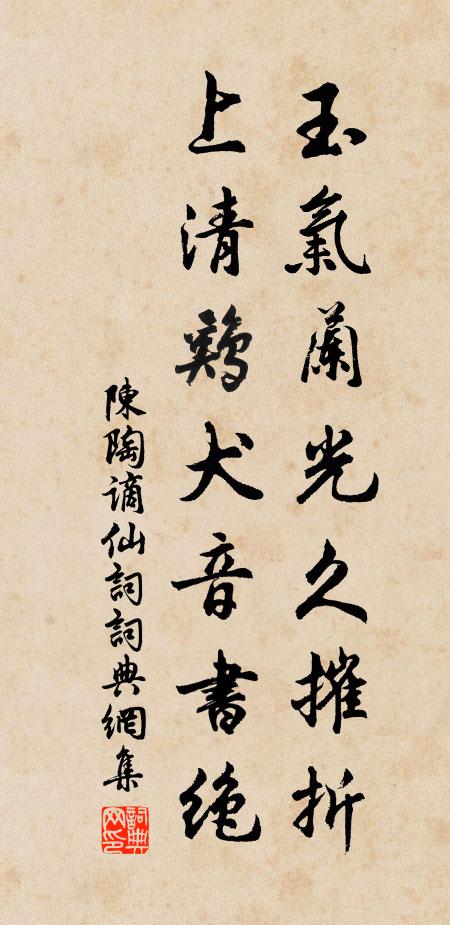 玉氣蘭光久摧折
上清鷄犬音書絶
陳陶謫仙詞詞典網集
詞典网印